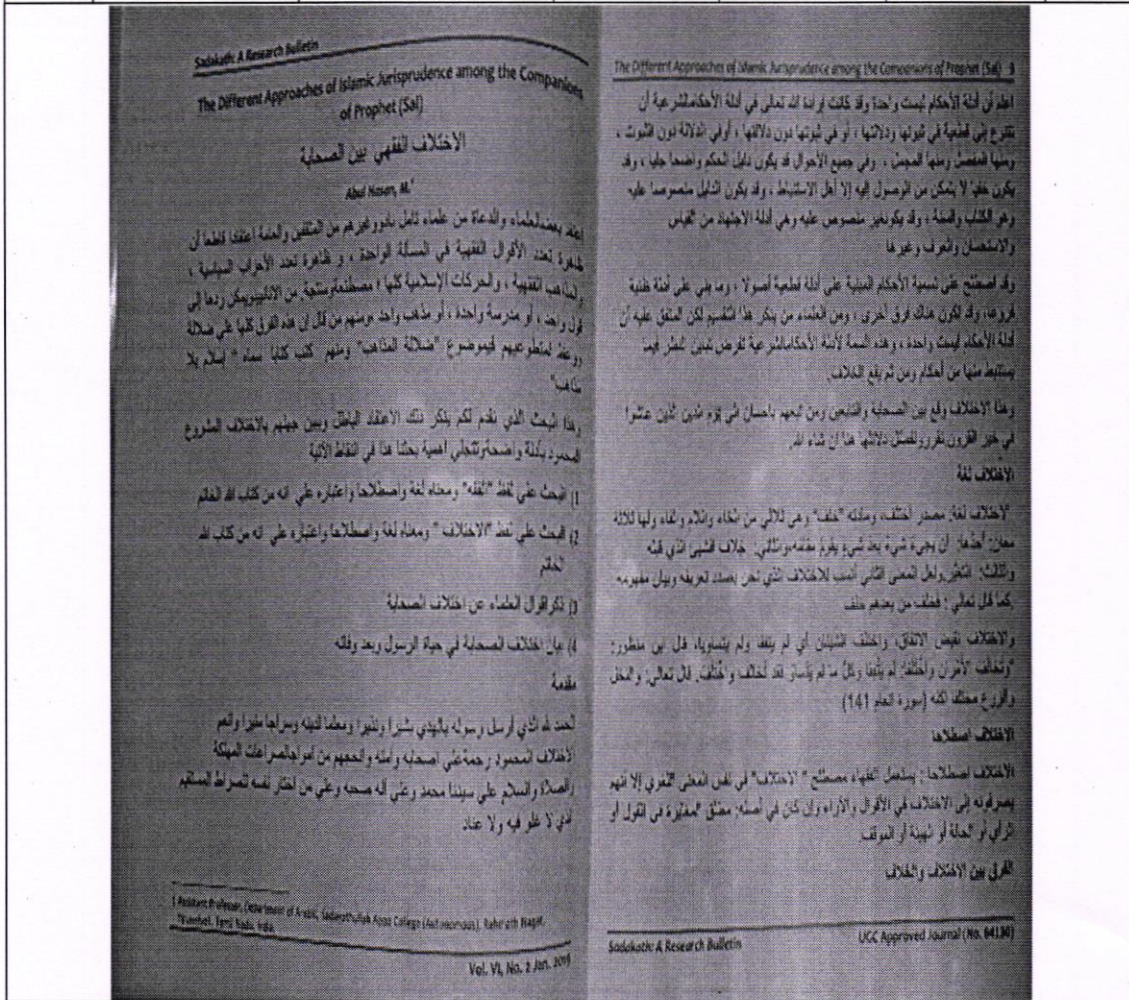 Sadakath: A Research Bulletin
The Different Approaches of Islamic Jurisprudence among the Companions
of Prophet (Sal)
الاختلاف الفقهي بين الصحابة
Abul Hasan, M.¹
اعتقد بعض العلماء والدعاة من علماء تامل نادو وغيرهم من المثقفين والعامة اعتقادا قاطعا أن
ظاهرة تعدد الأقوال الفقهية في المسألة الواحدة ، و ظاهرة تعدد الأحزاب السياسية ،
والمذاهب الفقهية ، والحركات الإسلامية كلها ؛ من ردها إلى
قول واحد ، أو مدرسة واحدة ، أو مذهب واحد ومنهم من قال إن هذه الفرق كلها على ضلالة
"ضلالة المذاهب" ومنهم كتب كتابا سماه " إسلام بلا
مذاهب"
وهذا البحث الذي نقدم لكم ينكر ذلك الاعتقاد الباطل ويبين جهلهم بالاختلاف المشروع
المحمود بأدلة واضحة وتتجلي أهمية بحثنا هذا في النقاط الآتية
1) البحث علي لفظ "الفقه" ومعناه لغة واصطلاحا واعتباره علي انه من كتاب الله الخاتم
2) البحث علي لفظ "الاختلاف " ومعناه لغة واصطلاحا واعتباره علي انه من كتاب الله
الخاتم
3) ذكر اقوال العلماء عن اختلاف الصحابة
4) بيان اختلاف الصحابة في حياة الرسول وبعد وفاته
مقدمة
الحمد لله الذي أرسل رسوله بالهدي بشيرا ونذيرا ومعلما لدينه وسراجا منيرا وانعم
الاختلاف المحمود رحمة علي اصحابه وامته المهلكة
والصلاة والسلام علي سيدنا محمد وعلي آله صحبه وعلي من اختار نفسه للصراط المستقيم
الذي لا غلو فيه ولا عناد
1 Assistant Professor, Department of Arabic, Sadakathullah Appa College (Autonomous), Rahmath Nagar,
Tirunelveli, Tamil Nadu, India.
Vol. VI, No. 2 Jan. 2019
The Different Approaches of Islamic Jurisprudence among the Companions of Prophet (Sal) 9
اعلم أن أدلة الأحكام ليست واحدة وقد كانت إرادة الله تعالى في أدلة الأحكام الشرعية أن
تتنوع إلى قطعية في ثبوتها ودلالتها ، أو في ثبوتها دون دلالتها ، أو في الدلالة دون الثبوت ،
ومنها المفصل ومنها المجمل ، وفي جميع الأحوال قد يكون دليل الحكم واضحا جليا ، وقد
يكون خفيا لا يتمكن من الوصول إليه إلا أهل الاستنباط ، وقد يكون الدليل منصوصا عليه
وهو الكتاب والسنة ، وقد يكون غير منصوص عليه وهي أدلة الاجتهاد من القياس
والاستحسان والعرف وغيرها
وقد اصطلح على تسمية الأحكام المبنية على أدلة قطعية أصولا ، وما بني على أدلة ظنية
فروعا، وقد تكون هناك فرق أخرى ، ومن العلماء من ينكر هذا التقسيم لكن المتفق عليه أن
أدلة الأحكام ليست واحدة ، وهذه السمة لأدلة الأحكام الشرعية تفرض تباين النظر فيما
يستنبط منها من أحكام ومن ثم يقع الخلاف.
وهذا الاختلاف وقع بين الصحابة والتابعين ومن تبعهم باحسان الي يوم الدين الذين عاشوا
في خير القرون دلالتها هنا ان شاء الله.
الاختلاف لغة
الاختلاف لغة: مصدر اختلف، ومادته "خلف" وهي ثلاثي من الخاء واللام والفاء ولها ثلاثة
معان: أحدها: أن يجيء شيء بعد شيء يقوم مقامه، والثاني: خلاف الشيئ الذي قبله
والثالث: التغير ولعل المعنى الثاني أنسب للاختلاف الذي نحن بصدد تعريفه وبيان مفهومه
كما قال تعالي : فخلف من بعدهم خلف
والاختلاف نقيض الاتفاق، واختلف الشيئان أي لم يتفقا ولم يتساويا، قال ابن منظور:
"وتخالف الأمران واختلفا: لم يتفقا وكل ما لم يتساو فقد تخالف واختلف. قال تعالي: والنخل
والزرع مختلفا اكله (سورة انعام 141)
الاختلاف اصطلاحا
الاختلاف اصطلاحا : يستعمل الفقهاء مصطلح " الاختلاف" في نفس المعنى اللغوي إلا أنهم
يصرفونه إلى الاختلاف في الأقوال والآراء وإن كان في أصله: مطلق المغايرة في القول أو
الرأي أو الحالة أو الهيئة أو الموقف.
الفرق بين الاختلاف والخلاف
Sadakath: A Research Bulletin
UGC Approved Journal (No. 64130)